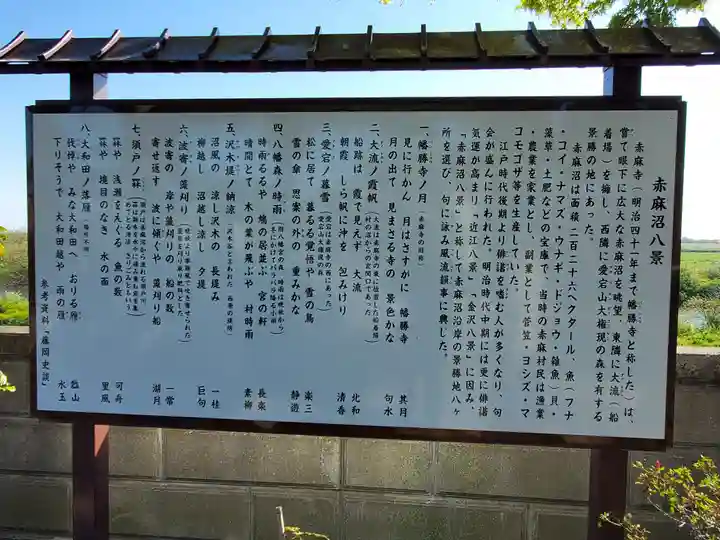 赤麻沼八景
赤麻寺(明治四十一年まで幡勝寺と称した)は、
嘗て眼下に広大な赤麻沼を眺望、東隣に大流(船
着場)を擁し、西隣に愛宕山大権現の森を有する
景勝の地にあった。
赤麻沼は面積二百二十六ヘクタール、魚(フナ
・コイ・ナマズ・ウナギ・ドジョウ・雑魚)貝・
藻草・土肥などの宝庫で、当時の赤麻村民は漁業
・農業を家業とし、副業として菅笠・ヨシズ・マ
コモゴザ等を生産していた。
江戸時代後期より俳諧を嗜む人が多くなり、句
会が盛んに行われた。明治時代中期には更に俳諧
気運が高まり「近江八景」「金沢八景」に因み、
「赤麻沼八景」と称して赤麻沼沿岸の景勝地八ヶ
所を選び、句に詠み風流韻事に興した。
一、幡勝寺ノ月(赤麻寺の旧称)
見に行かん 月はさすがに 幡勝寺 其月
月の出て 見まさる寺の 景色かな 句水
二、大流ノ霞帆
船跡は 霞で見えず 大流 北和
朝霞 しら帆に沖を 包みけり 清香
三、愛宕ノ暮雪
松に居て 暮るるる覚悟や 雪の鳥 楽三
雪の傘 思案の外の 重みかな 静遊
四、八幡森ノ時雨
時雨るるや 鳩の居並ぶ 宮の軒 長楽
晴間とて 木の葉が飛ぶや 村時雨 素柳
五、沢木堤ノ納涼
沼風の 涼し沢木の 長堤み 一桂
柳越し 沼越し涼し 夕堤 巨句
六、波寄ノ藻刈り
波寄の 岸や藻刈り 船の数 一常
寄せ返す 波に傾くや 藻刈り船 湖月
七、須戸ノ簗
簗や 浅瀬をえぐる 魚の数 可舟
簗や 境目のなき 水の面 里風
八、大和田ノ落雁(場所不明)
筏棹や みな大和田へ おりる雁 盤山
下りそうで 大和田越や 雨の雁 水玉
参考資料「藤岡史談」